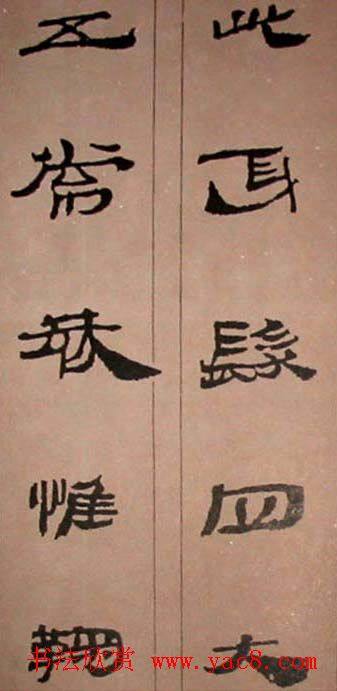 此身髮四大
五常恭惟鞠
书法欣赏 www.yac8.com